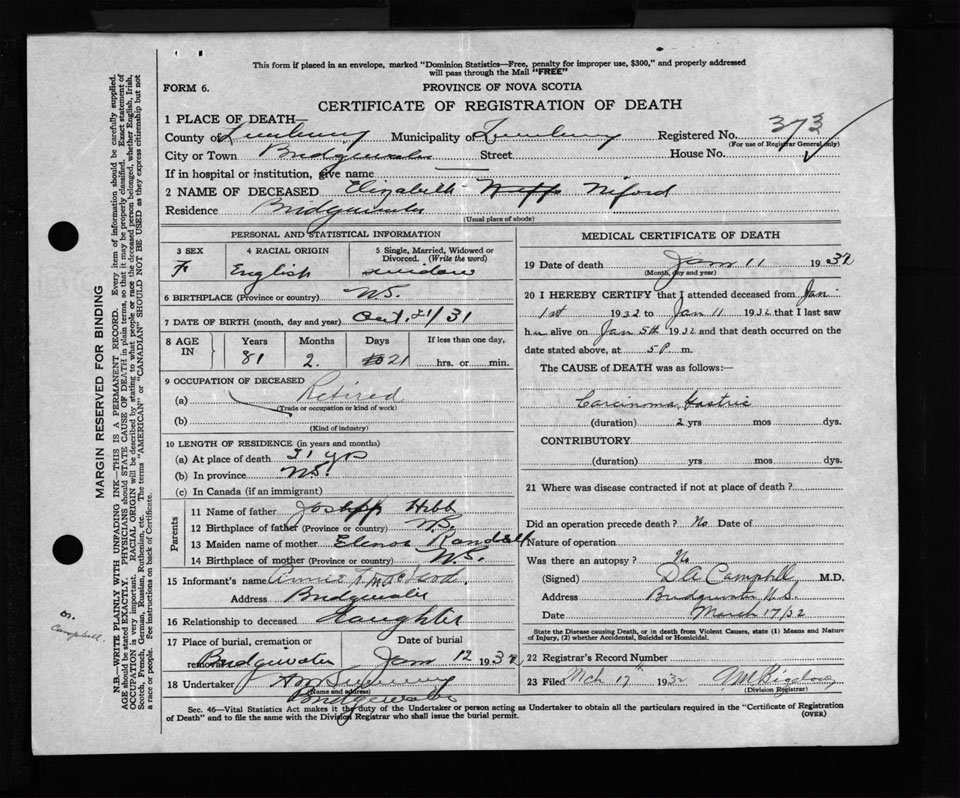 This form if placed in an envelope, marked "Dominion Statistics—Free, penalty for improper use, $300," and properly addressed
will pass through the Mail "FREE"
FORM 6.
PROVINCE OF NOVA SCOTIA
CERTIFICATE OF REGISTRATION OF DEATH
1 PLACE OF DEATH
County of Lunenburg Municipality of Lunenburg Registered No. 373
(For use of Registrar General only)
City or Town Bridgewater Street House No.
If in hospital or institution, give name
2 NAME OF DECEASED Elizabeth
Residence Bridgewater
(Usual place of abode)
PERSONAL AND STATISTICAL INFORMATION
3 SEX 4 RACIAL ORIGIN 5 Single, Married, Widowed or Divorced. (Write the word)
F English widow
6 BIRTHPLACE (Province or country) N.S.
7 DATE OF BIRTH (month, day and year) Oct. 21/31
8 AGE IN Years Months Days If less than one day,
81 2. 21 hrs. or min.
9 OCCUPATION OF DECEASED
(a) Retired
(Trade or occupation or kind of work)
(b)
(Kind of industry)
10 LENGTH OF RESIDENCE (in years and months)
(a) At place of death 31 yrs
(b) In province N.S.
(c) In Canada (if an immigrant)
Parents
11 Name of father Joseph Hebb
12 Birthplace of father (Province or country) N.S.
13 Maiden name of mother Elenor Randall
14 Birthplace of mother (Province or country) N.S.
15 Informant's name Annie MacLeod.
Address Bridgewater
16 Relationship to deceased Daughter
17 Place of burial, cremation or removal Date of burial
Bridgewater Jan 12 1932
18 Undertaker
(Name and address)
Bridgewater
MEDICAL CERTIFICATE OF DEATH
19 Date of death Jan 11 1932
(Month, day and year)
20 I HEREBY CERTIFY that I attended deceased from Jan
1st 1932 to Jan 11 1932 that I last saw
her alive on Jan 5th 1932 and that death occurred on
date stated above, at 5 P m.
The CAUSE of DEATH was as follows:—
Carcinoma Gastric
(duration) 2 yrs mos dys.
CONTRIBUTORY
(duration) yrs mos dys.
21 Where was disease contracted if not at place of death?
Did an operation precede death? No Date of
Nature of operation
Was there an autopsy? No
(Signed) D A Campbell, M.D.
Address Bridgewater N.S.
Date March 17/32
State the Disease causing Death, or in death from Violent Causes, state (1) Means and Nature
of Injury, (2) whether Accidental, Suicidal or Homicidal.
22 Registrar's Record Number
23 Filed Mch 17th 1932
(Division Registrar)
Sec. 46—Vital Statistics Act makes it the duty of the Undertaker or person acting as Undertaker to obtain all the particulars required in the "Certificate of Registration
of Death" and to file the same with the Division Registrar who shall issue the burial permit.
(OVER)
MARGIN RESERVED FOR BINDING
N.B.—WRITE PLAINLY WITH UNFADING INK—THIS IS A PERMANENT RECORD. Every item of information should be carefully supplied.
AGE should be stated EXACTLY. PHYSICIANS should STATE CAUSE OF DEATH in plain terms, so that it may be properly classified. Exact statement of
OCCUPATION is very important. RACIAL ORIGIN will be described by stating to what people or race the deceased person belonged, whether English, Irish,
Scotch, French, German, Russian, Ruthenian, etc. The terms "AMERICAN" or "CANADIAN" SHOULD NOT BE USED as they express citizenship but not
a race or people. See instructions on back of Certificate.
Dr.
Campbell.